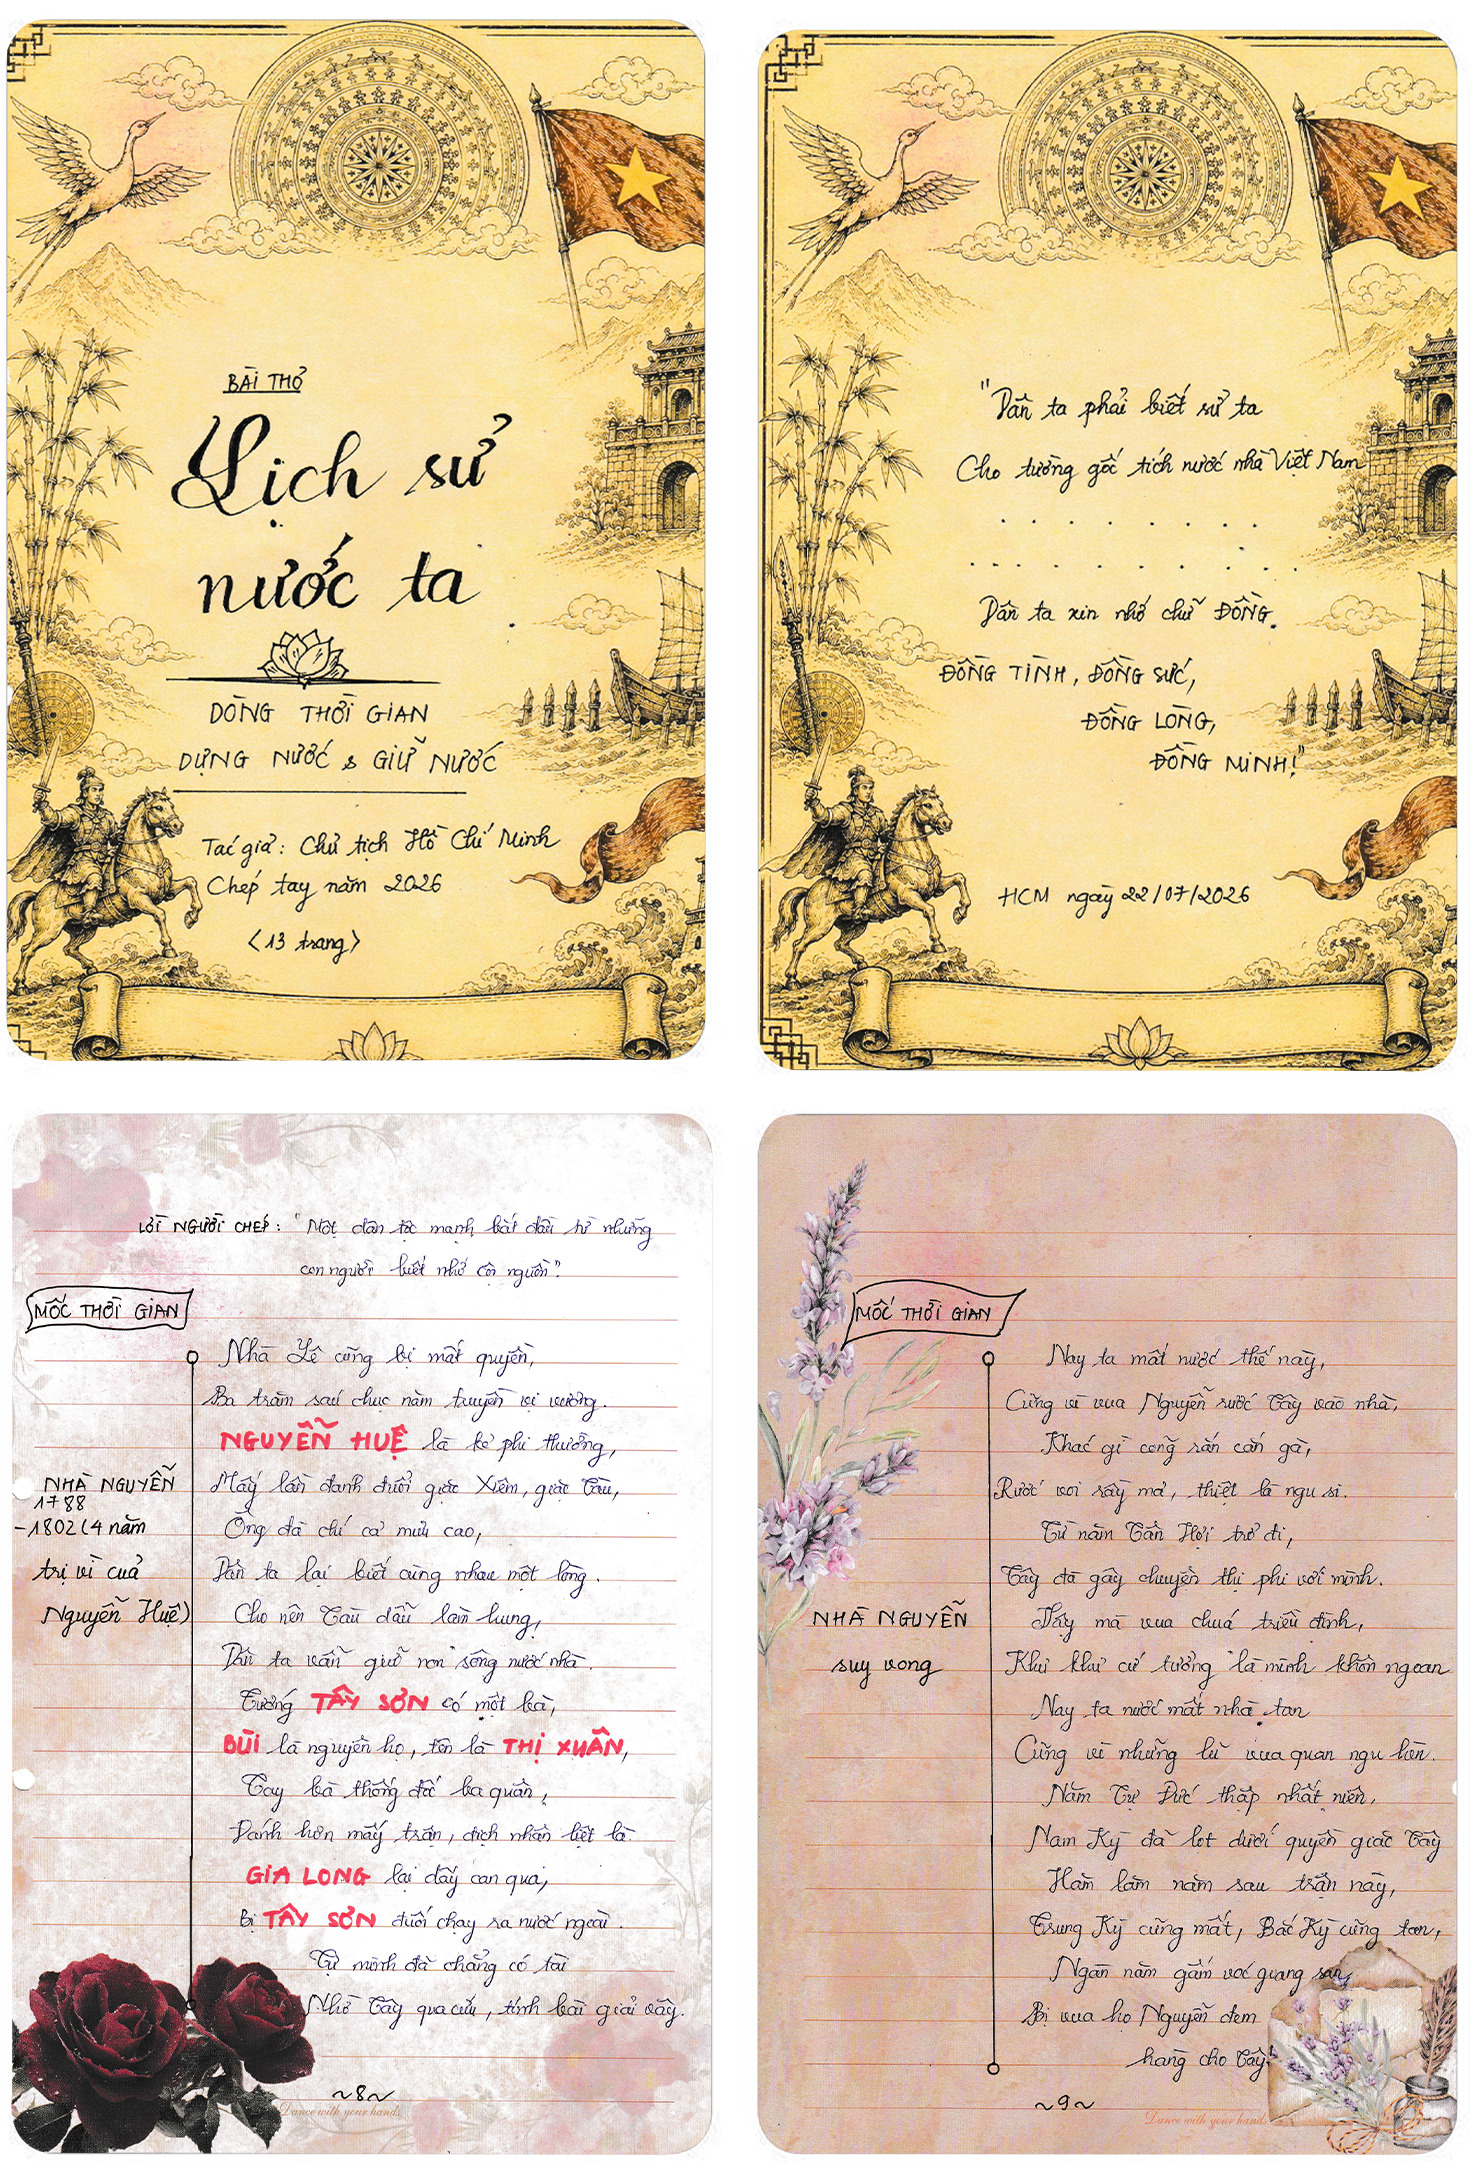 BÀI THƠ
Lịch sử
nước ta
DÒNG THỜI GIAN
DỰNG NƯỚC & GIỮ NƯỚC
Tác giả: Chủ tịch Hồ Chí Minh
Chép tay năm 2026
<13 trang>
"Dân ta phải biết sử ta
Cho tường gốc tích nước nhà Việt Nam
. . . . . . . .
. . . . . . . . . .
Dân ta xin nhớ chữ ĐỒNG.
ĐỒNG TÌNH, ĐỒNG SỨC,
ĐỒNG LÒNG,
ĐỒNG MINH!"
HCM ngày 22/07/2026
LỜI NGƯỜI CHÉP: "Một dân tộc mạnh bắt đầu từ những
con người biết nhớ cội nguồn".
MỐC THỜI GIAN
Nhà Lê cũng bị mất quyền,
Ba trăm sáu chục năm truyền vị vương.
NGUYỄN HUỆ là kẻ phi thường,
Mấy lần đánh đuổi giặc Xiêm, giặc Tàu,
Ông đà chí cả mưu cao,
Dân ta lại biết cùng nhau một lòng.
Cho nên Tàu dẫu làm hung,
Dân ta vẫn giữ non sông nước nhà.
Tướng TÂY SƠN có một bà,
BÙI là nguyên họ, tên là THỊ XUÂN,
Tay bà thống đốc ba quân,
Đánh hơn mấy trận, địch nhân liệt là.
GIA LONG lại dấy can qua,
Bị TÂY SƠN đuổi chạy ra nước ngoài.
Tự mình đã chẳng có tài
Nhờ Tây qua cứu, tính bài giải vây.
NHÀ NGUYỄN
1788
-1802 (4 năm
trị vì của
Nguyễn Huệ)
~8~
Dance with your hands
MỐC THỜI GIAN
Nay ta mất nước thế này,
Cũng vì vua Nguyễn rước Tây vào nhà,
Khác gì cõng rắn cắn gà,
Rước voi giày mả, thiệt là ngu si.
Từ năm Tân Hợi trở đi,
Tây đà gây chuyện thị phi với mình.
Vậy mà vua chúa triều đình,
Khư khư cứ tưởng là mình khôn ngoan
Nay ta nước mất nhà tan
Cũng vì những lũ vua quan ngu hèn.
Năm Tự Đức thập nhất niên,
Nam Kỳ đã lọt dưới quyền giặc Tây
Hăm lăm năm sau trận này,
Trung Kỳ cũng mất, Bắc Kỳ cũng tan,
Ngàn năm gấm vóc giang san,
Bị vua họ Nguyễn đem
hàng cho Tây!
NHÀ NGUYỄN
suy vong
~9~
Dance with your hands